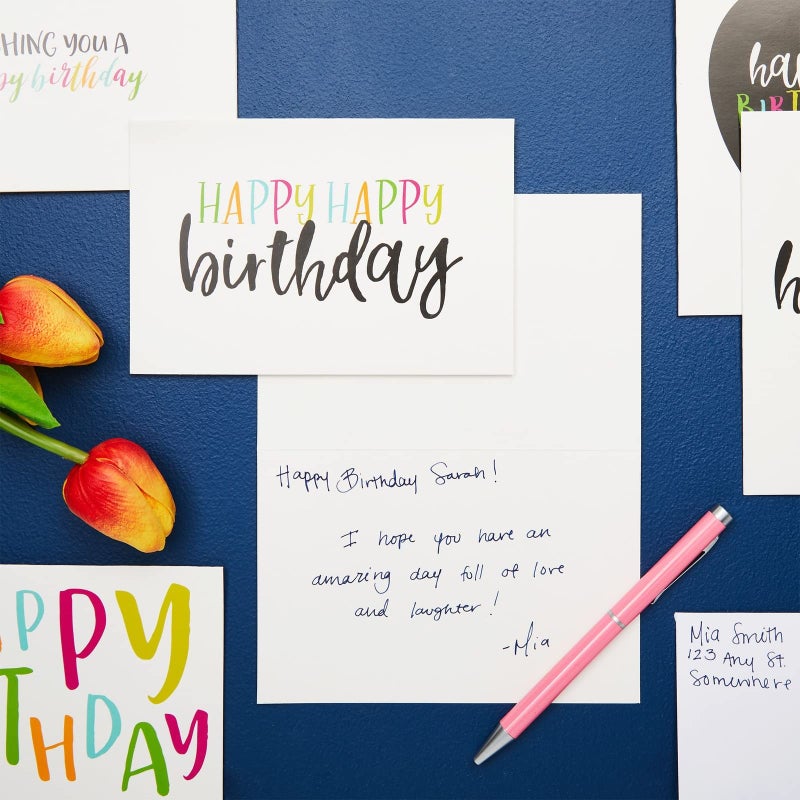 HING YOU A
py birthday
HAPPY HAPPY
birthday
Happy Birthday Sarah!
I hope you have an
amazing day full of love
and laughter!
-Mia
PPY
THDAY
Mia Smith
123 Any St.
Somewhere